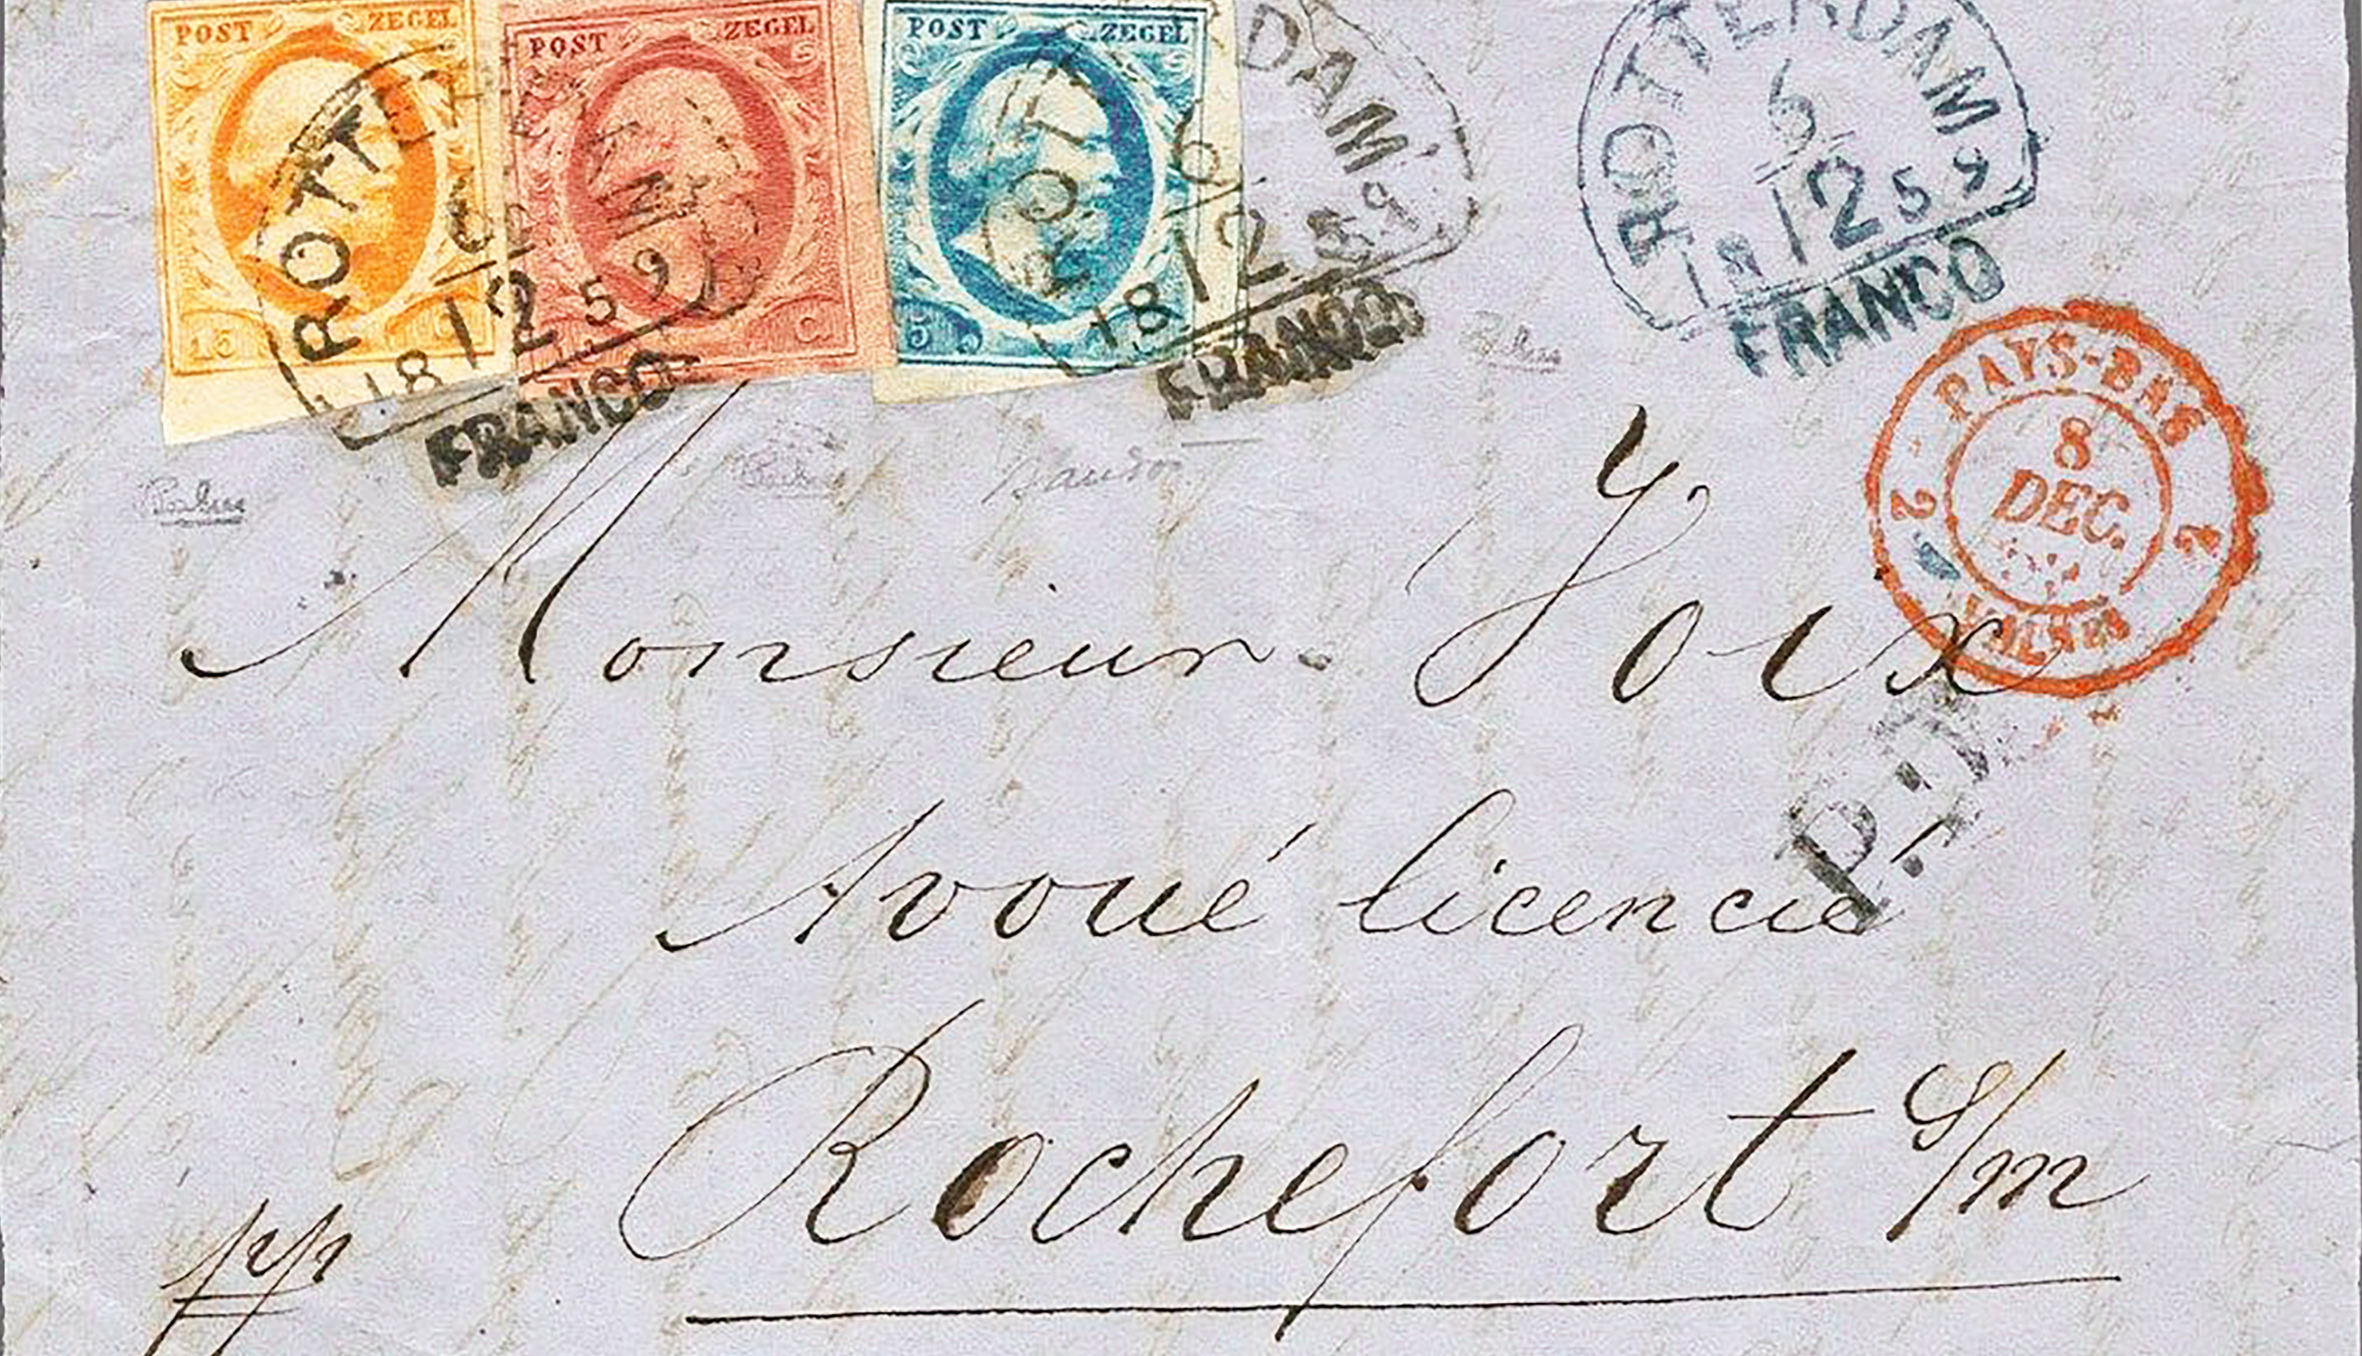 POST ZEGEL POST ZEGEL POST ZEGEL
ROTTERDAM
6
12
18 59
FRANCO
15 C
C
5
ROTTERDAM
6
12
18 59
FRANCO
ROTTERDAM
6
12
18 59
FRANCO
PAYS-BAS
8
DEC.
2 2
Monsieur Foix
P.D.
Avoué licencié
Rochefort s/m
pp